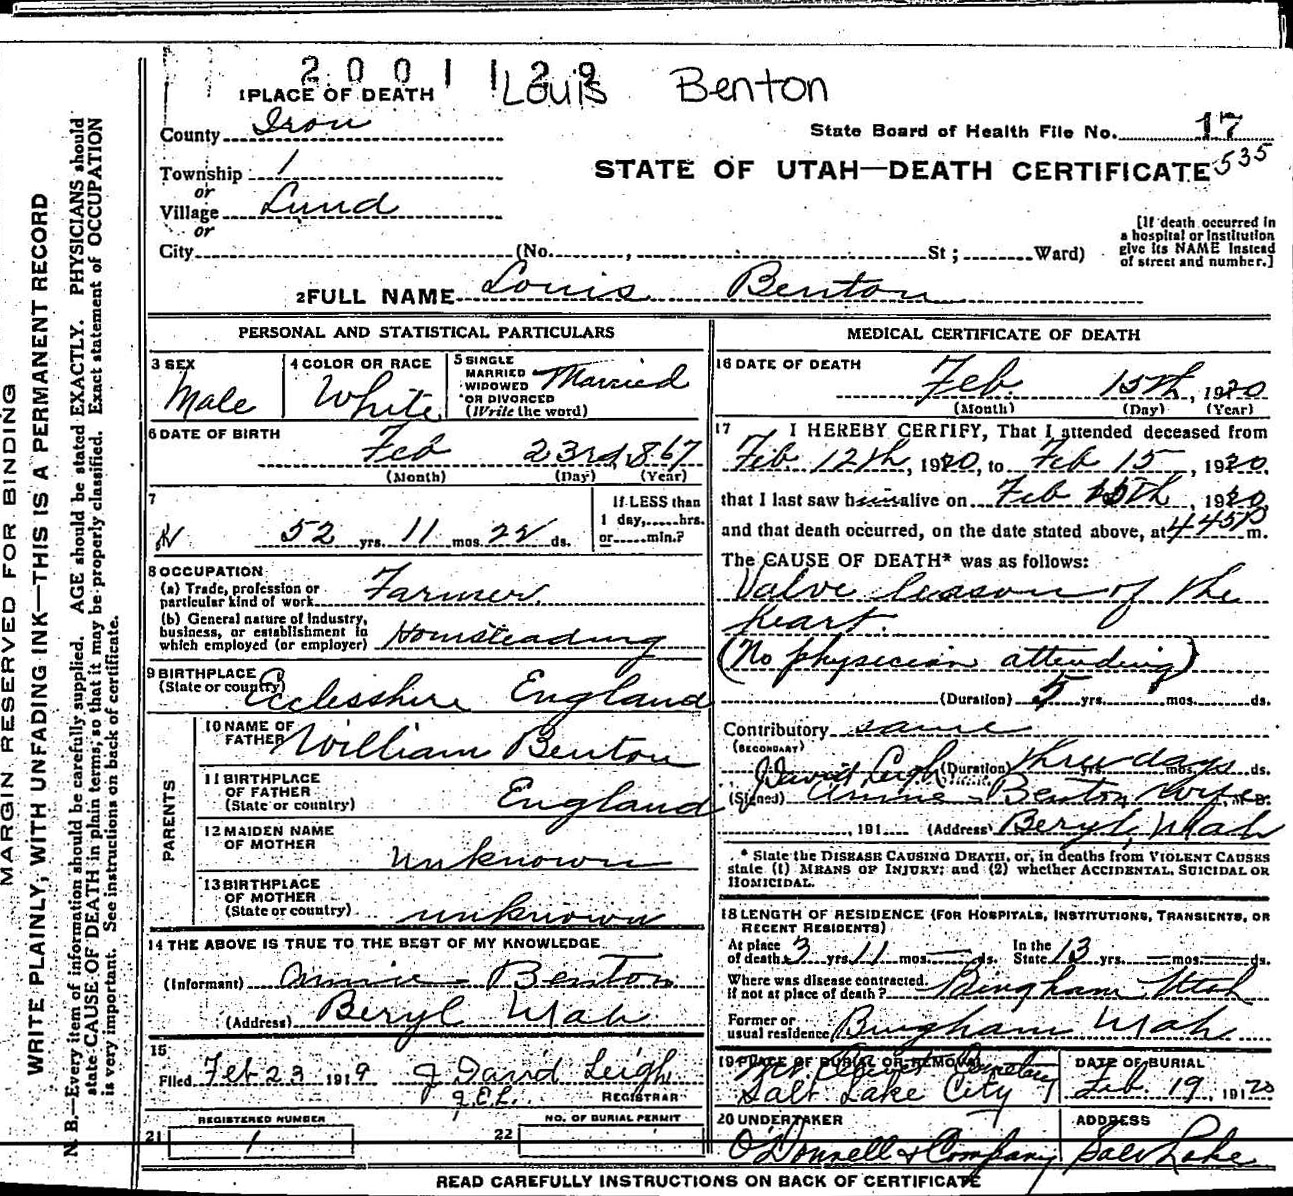 2001129 Louis Benton
1 PLACE OF DEATH
County Iron
State Board of Health File No. 17
535
Township 1
STATE OF UTAH—DEATH CERTIFICATE
or
Village Lund
or
City (No. , St ; Ward)
[If death occurred in
a hospital or institution
give its NAME instead
of street and number.]
2 FULL NAME Louis Benton
PERSONAL AND STATISTICAL PARTICULARS
3 SEX
Male
4 COLOR OR RACE
White
5 SINGLE
MARRIED
WIDOWED
OR DIVORCED
(Write the word)
Married
6 DATE OF BIRTH
Feb 23rd, 1867
(Month) (Day) (Year)
7
52 yrs. 11 mos. 22 ds.
If LESS than
1 day,......hrs.
or......min.?
8 OCCUPATION
(a) Trade, profession or
particular kind of work Farmer
(b) General nature of Industry,
business, or establishment in
which employed (or employer) Homsteading
9 BIRTHPLACE
(State or country) Ecclesshire England
PARENTS
10 NAME OF
FATHER William Benton
11 BIRTHPLACE
OF FATHER
(State or country) England
12 MAIDEN NAME
OF MOTHER unknown
13 BIRTHPLACE
OF MOTHER
(State or country) unknown
14 THE ABOVE IS TRUE TO THE BEST OF MY KNOWLEDGE
(Informant) Annie Benton
(Address) Beryl Utah
15
Filed Feb 23 1919 J David Leigh
REGISTRAR
REGISTERED NUMBER
21 1
22 NO. OF BURIAL PERMIT
MEDICAL CERTIFICATE OF DEATH
16 DATE OF DEATH
Feb. 15th, 1920
(Month) (Day) (Year)
17 I HEREBY CERTIFY, That I attended deceased from
Feb 12th, 1920, to Feb 15, 1920,
that I last saw him alive on Feb 15th, 1920,
and that death occurred, on the date stated above, at 445P m.
The CAUSE OF DEATH* was as follows:
Valve leason of the
heart.
(No physecian attending)
(Duration) 5 yrs. mos. ds.
Contributory same
(SECONDARY)
David Leigh (Duration) three days yrs. mos. ds.
(Signed) Annie Benton wife, M. D.
, 191 (Address) Beryl, Utah
* State the DISEASE CAUSING DEATH, or, in deaths from VIOLENT CAUSES
state (1) MEANS OF INJURY; and (2) whether ACCIDENTAL, SUICIDAL OR
HOMICIDAL.
18 LENGTH OF RESIDENCE (FOR HOSPITALS, INSTITUTIONS, TRANSIENTS, OR
RECENT RESIDENTS)
At place
of death 3 yrs. 11 mos. — ds.
In the
State 13 yrs. — mos. — ds.
Where was disease contracted,
if not at place of death? Bingham Utah
Former or
usual residence Bingham Utah
19 PLACE OF BURIAL OR REMOVAL
Mt Olivet Cemetery
Salt Lake City
DATE OF BURIAL
Feb. 19, 1920
20 UNDERTAKER
O'Donnell & Company
ADDRESS
Salt Lake
READ CAREFULLY INSTRUCTIONS ON BACK OF CERTIFICATE
MARGIN RESERVED FOR BINDING
WRITE PLAINLY, WITH UNFADING INK—THIS IS A PERMANENT RECORD
N. B.—Every item of information should be carefully supplied. AGE should be stated EXACTLY. PHYSICIANS should
state CAUSE OF DEATH in plain terms, so that it may be properly classified. Exact statement of OCCUPATION
is very important. See instructions on back of certificate.